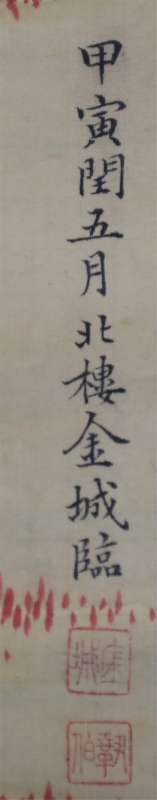 甲寅閏五月北樓金城臨
金城
鞏伯